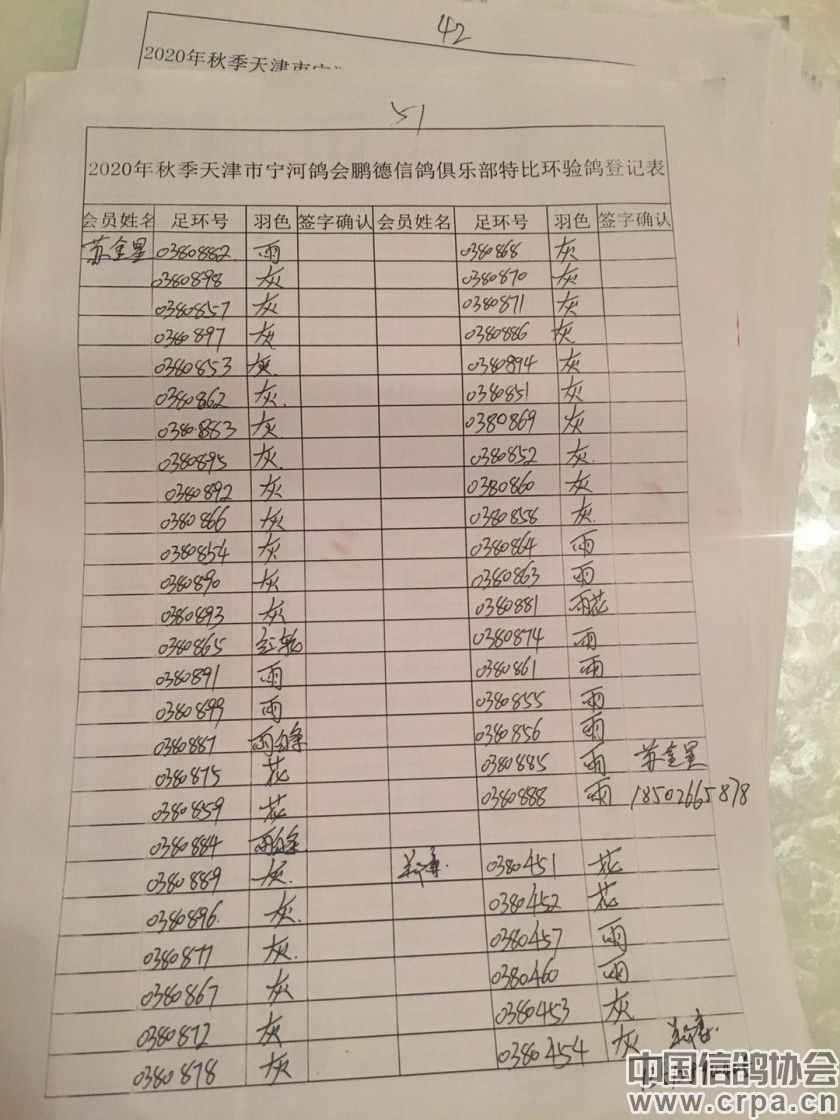 42
2020年秋季天津市宁河
51
2020年秋季天津市宁河鸽会鹏德信鸽俱乐部特比环验鸽登记表
会员姓名 足环号 羽色 签字确认 会员姓名 足环号 羽色 签字确认
苏金星 0380882 雨 0380868 灰
0380898 灰 0380870 灰
0380857 灰 0380871 灰
0380897 灰 0380886 灰
0380853 灰 0380894 灰
0380862 灰 0380851 灰
0380883 灰 0380869 灰
0380895 灰 0380852 灰
0380892 灰 0380860 灰
0380866 灰 0380858 灰
0380854 灰 0380864 雨
0380890 灰 0380863 雨
0380893 灰 0380881 雨花
0380865 红轮 0380874 雨
0380891 雨 0380861 雨
0380899 雨 0380855 雨
0380887 雨白条 0380856 雨
0380875 花 0380885 雨 苏金星
0380859 花 0380888 雨 18502665878
0380884 雨白条
0380889 灰 0380451 花
0380896 灰 0380452 花
0380877 灰 0380457 雨
0380867 灰 0380460 雨
0380872 灰 0380453 灰
0380878 灰 0380454 灰
中国信鸽协会
www.crpa.cn